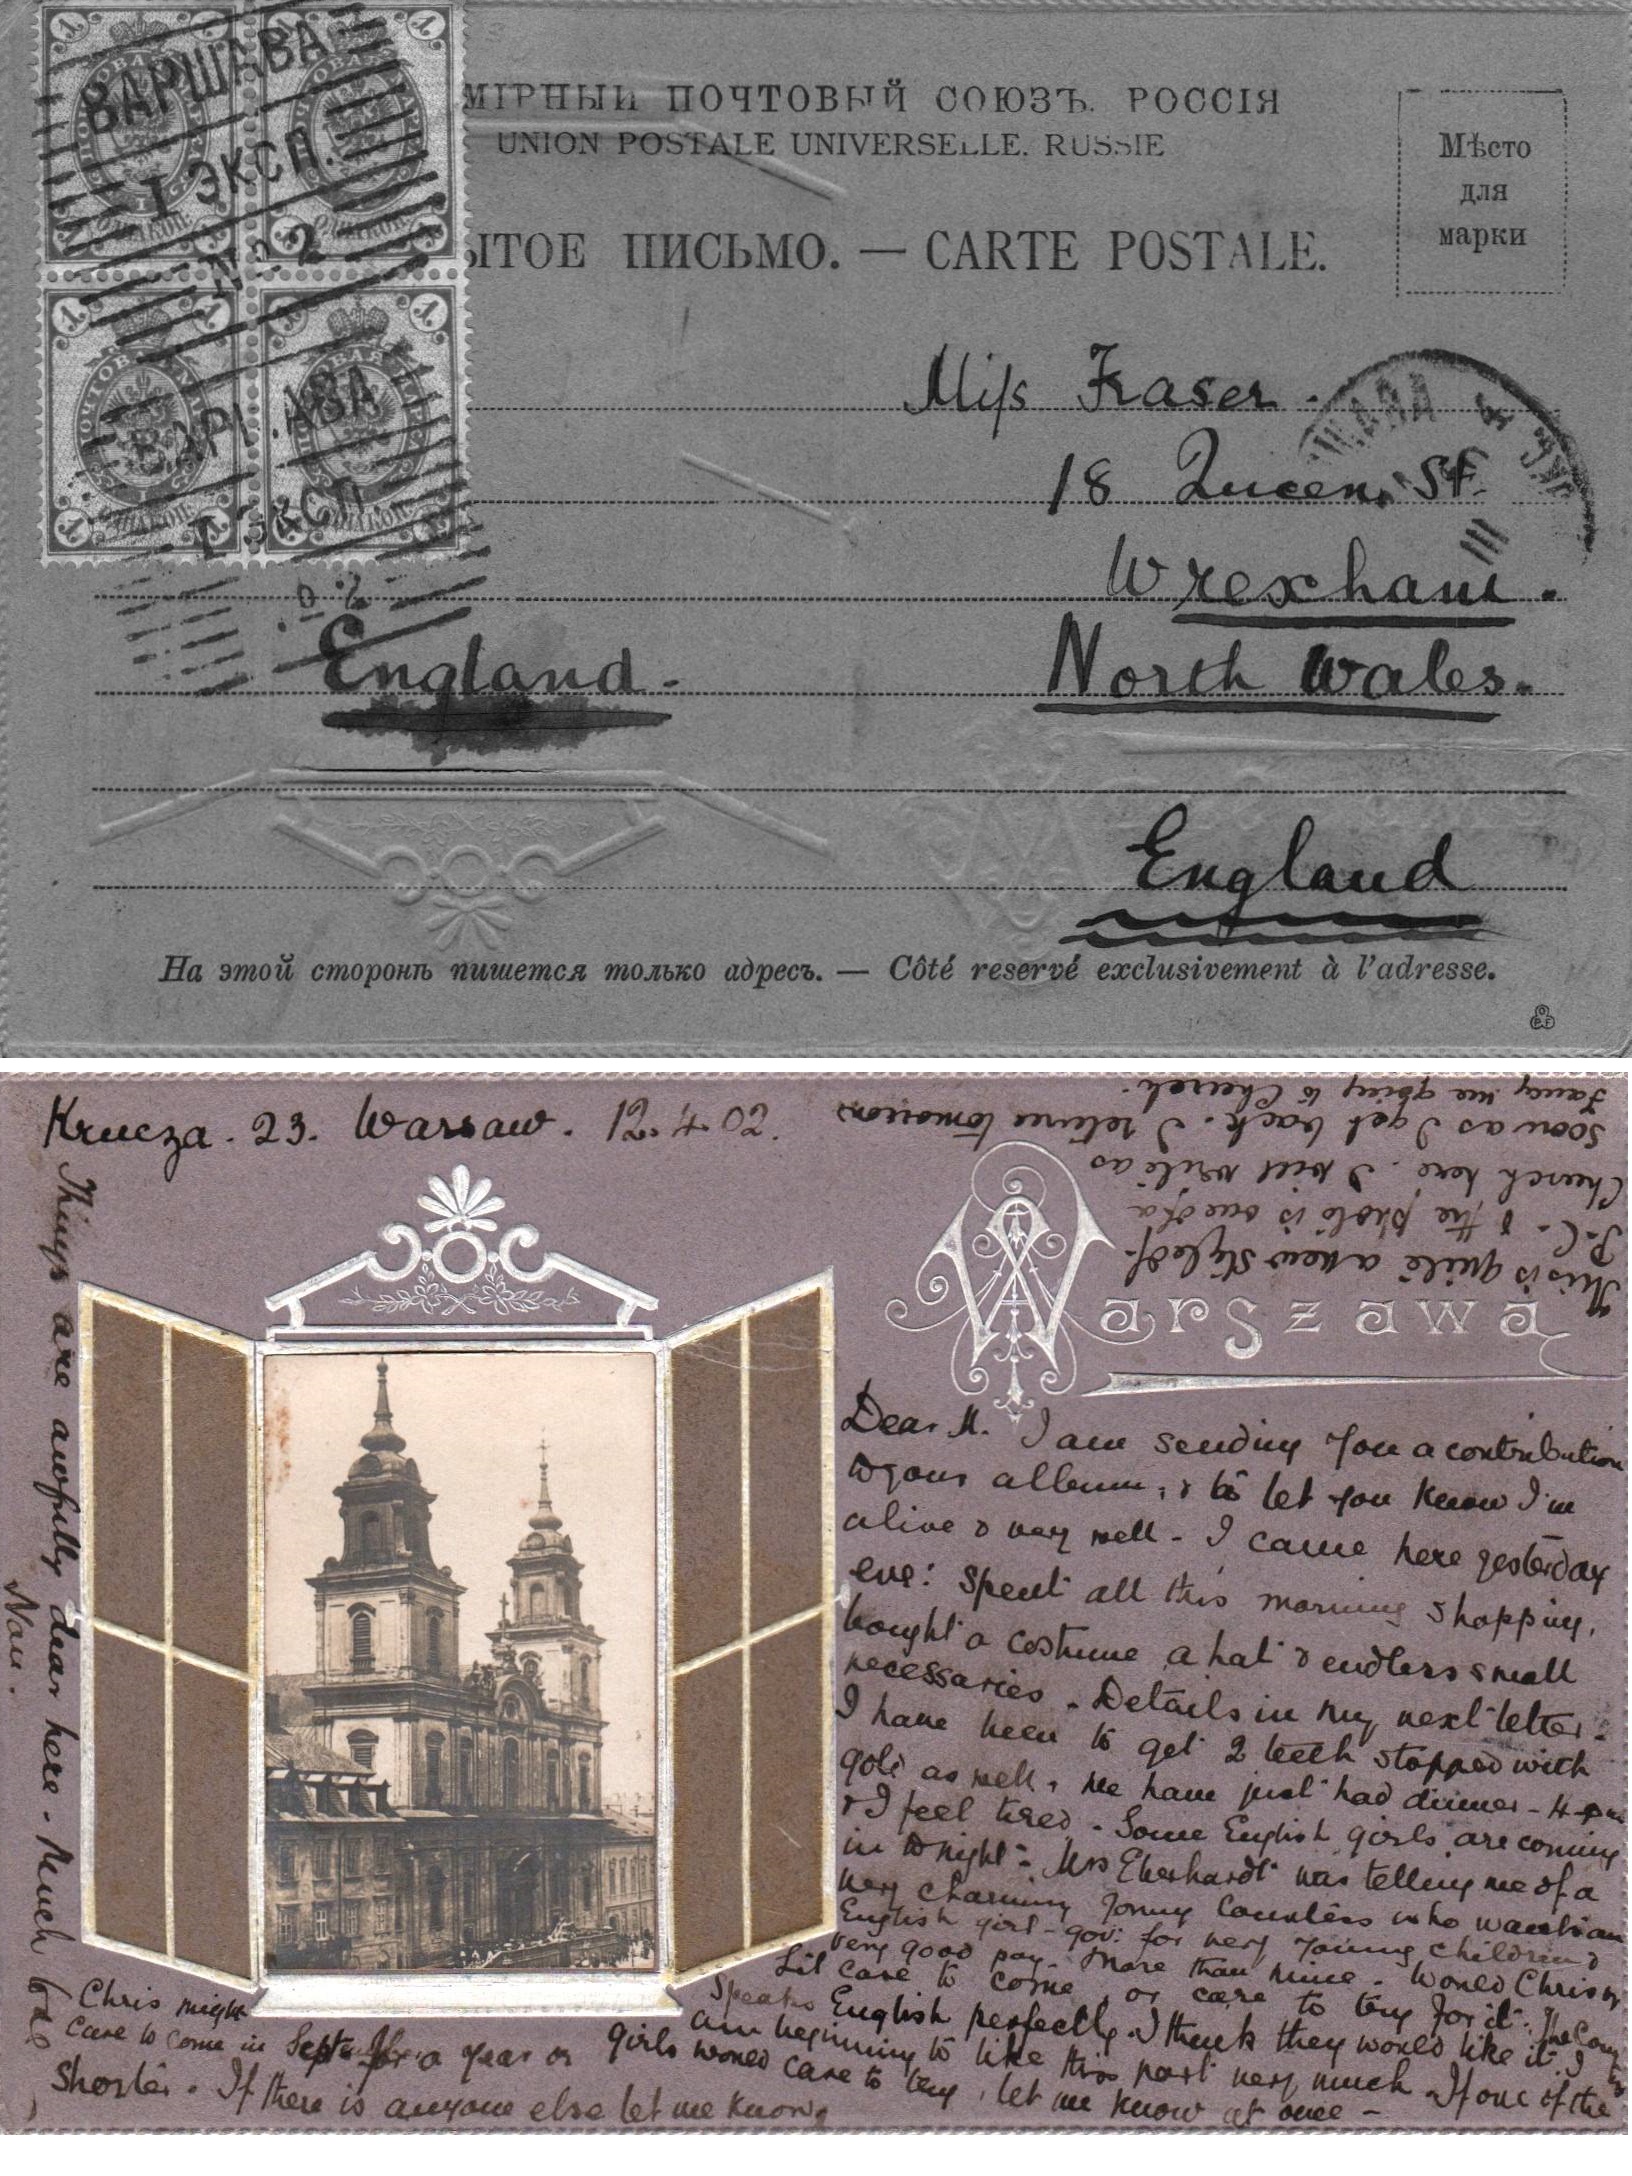 ВАРШАВА
I ЭКСП.
№ 2
МІРНЫЙ ПОЧТОВЫЙ СОЮЗЪ. РОССІЯ
UNION POSTALE UNIVERSELLE. RUSSIE
Мѣсто
для
марки
ЫТОЕ ПИСЬМО. — CARTE POSTALE.
Miss Fraser.
18 Queen St.
Wrexham.
North Wales.
England.
England
На этой сторонѣ пишется только адресъ. — Côté reservé exclusivement à l'adresse.
Krucza. 23. Warsaw. 12.4.02.
Warszawa
Dear M. I am sending you a contribution
to your album, & to let you know I'm
alive & very well - I came here yesterday
eve: spent all this morning shopping,
bought a costume, a hat & endless small
necessaries. Details in my next letter.
I have been to get 2 teeth stopped with
gold as well, we have just had dinner - 4 pm
& I feel tired. Some English girls are coming
in tonight - Mrs Eberhardt was telling me of a
very charming young Countess who wants an
English girl-gov: for very young children &
very good pay. More than mine. Would Chris or
Lil care to come, or care to try for it. The
speaks English perfectly. I think they would like it. I
am beginning to like this part very much. If one of the
girls would care to try, let me know at once -
Chris might
care to come in Sept. for a year or
shorter. If there is anyone else let me know
Things are awfully dear here. Much love
Nan.
This is quite a new style of
P.C. & the photo is one of a
Church here. I will write as
soon as I get back. I return tomorrow
Fancy me going to Church.